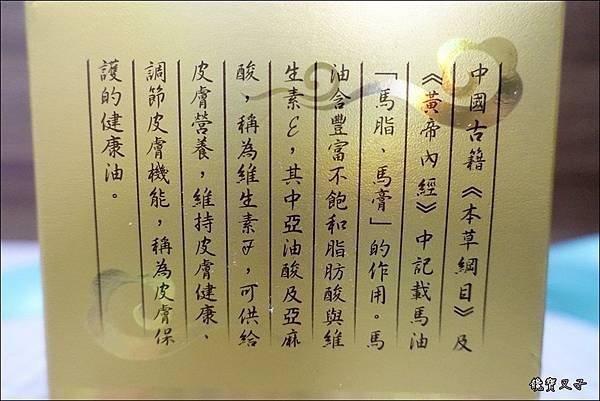 中國古籍《本草綱目》及
《黃帝內經》中記載馬油
「馬脂、馬膏」的作用。馬
油含豐富不飽和脂肪酸與維
生素E，其中亞油酸及亞麻
酸，稱為維生素F，可供給
皮膚營養，維持皮膚健康、
調節皮膚機能，稱為皮膚保
護的健康油。